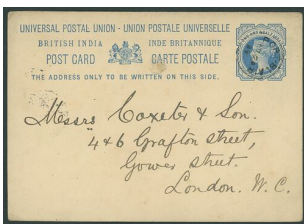 UNIVERSAL POSTAL UNION - UNION POSTALE UNIVERSELLE
BRITISH INDIA INDE BRITANNIQUE
POST CARD CARTE POSTALE
THE ADDRESS ONLY TO BE WRITTEN ON THIS SIDE.
Messrs Coxeter & Son.
4 & 6 Grafton street,
Gower street.
London. W. C.